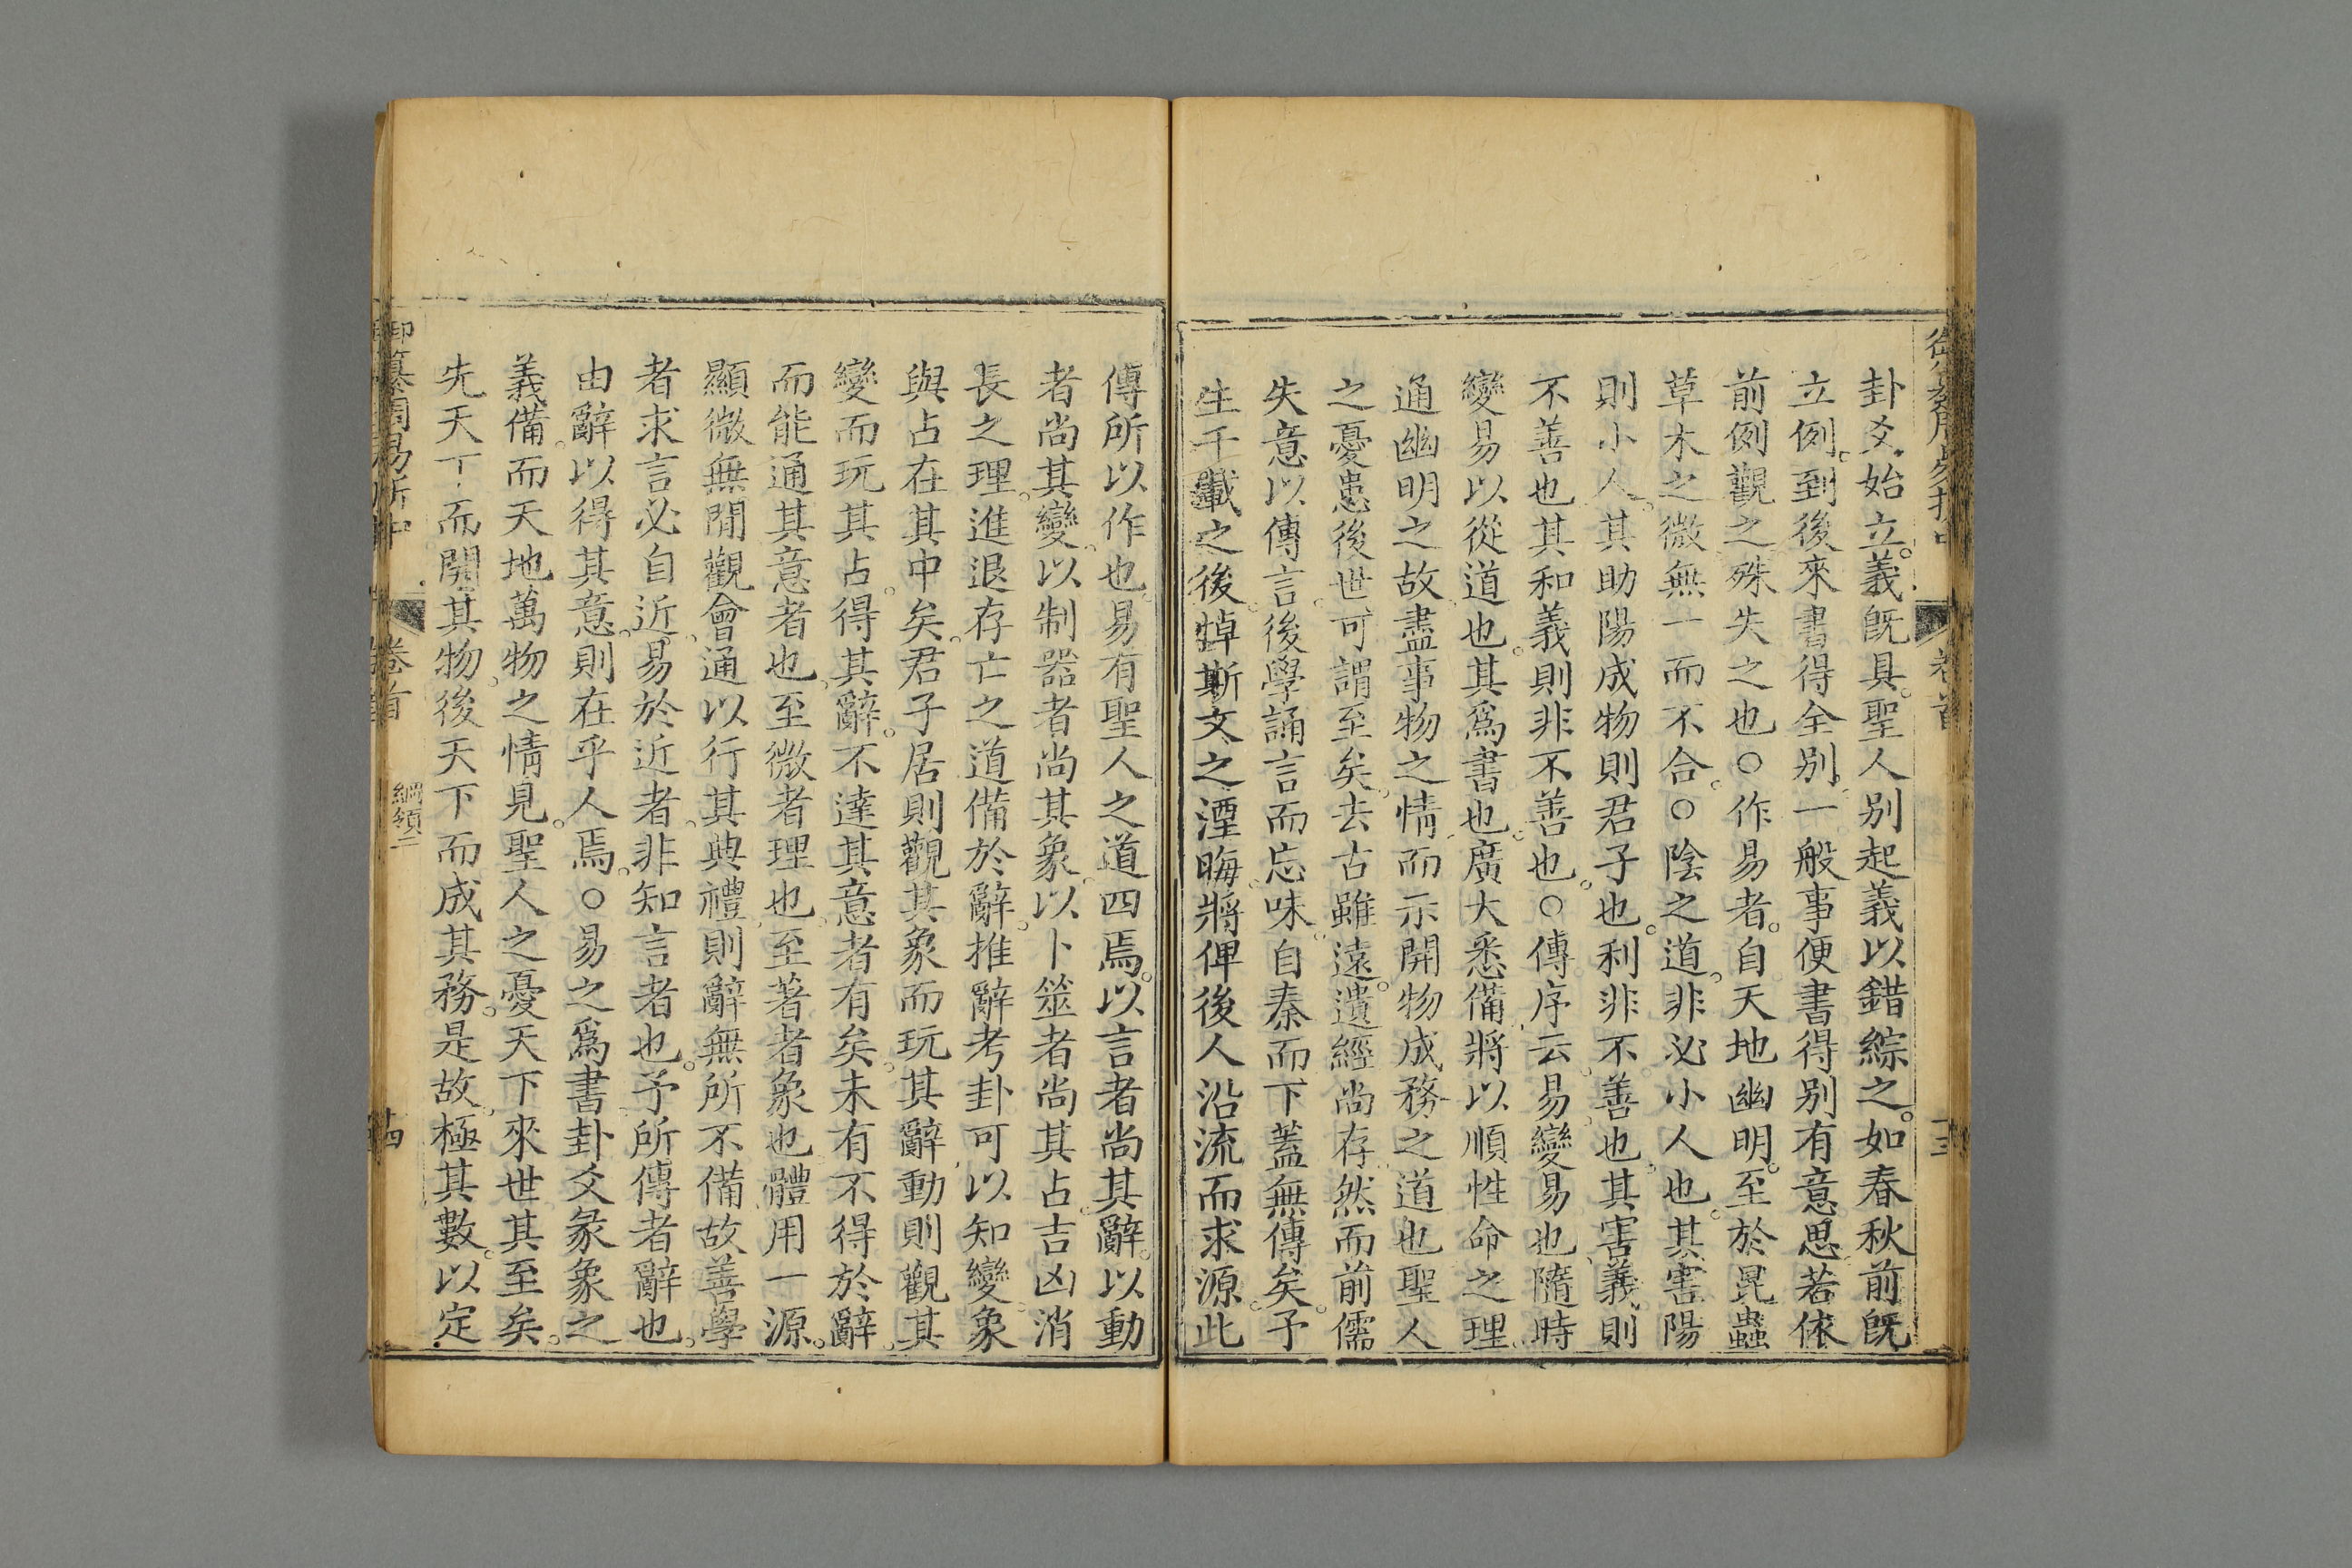 卦爻始立。義旣具。聖人别起義以錯綜之。如春秋前旣
立例。到後來書得全别。一般事便書得别有意思。若依
前例觀之。殊失之也○作易者。自天地幽明。至於昆蟲
草木之微。無一而不合。○陰之道。非必小人也。其害陽
則小人。其助陽成物則君子也。利非不善也。其害義。則
不善也。其和義則非不善也。○傳序云。易。變易也。隨時
變易以從道也。其爲書也。廣大悉備。將以順性命之理。
通幽明之故。盡事物之情。而示開物成務之道也。聖人
之憂患後世。可謂至矣。去古雖遠。遺經尚存。然而前儒
失意以傳言。後學誦言而忘味。自秦而下。蓋無傳矣。予
生千載之後。悼斯文之湮晦。將俾後人沿流而求源。此
傳所以作也。易有聖人之道四焉。以言者尚其辭。以動
者尚其變。以制器者尚其象。以卜筮者尚其占。吉凶消
長之理。進退存亡之道備於辭。推辭考卦。可以知變。象
與占在其中矣。君子居則觀其象而玩其辭。動則觀其
變而玩其占。得其辭。不達其意者有矣。未有不得於辭。
而能通其意者也。至微者理也。至著者象也。體用一源。
顯微無閒。觀會通以行其典禮。則辭無所不備。故善學
者求言必自近。易於近者。非知言者也。予所傳者辭也。
由辭以得其意。則在乎人焉。○易之爲書。卦爻彖象之
義備。而天地萬物之情見。聖人之憂天下來世其至矣。
先天下而開其物。後天下而成其務。是故極其數。以定
御纂周易折中
卷首
綱領二